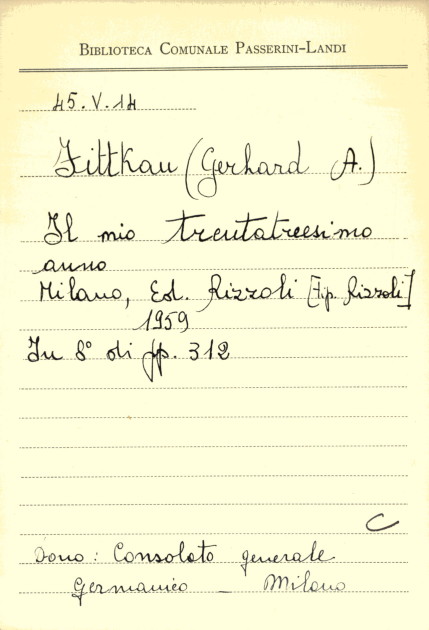 Biblioteca Comunale Passerini-Landi
45.V.14
Fittkau (Gerhard A.)
Il mio trentatreesimo
anno
Milano, Ed. Rizzoli [Tip. Rizzoli]
1959
In 8° di pp. 312
C
Dono: Consolato generale
Germanico - Milano